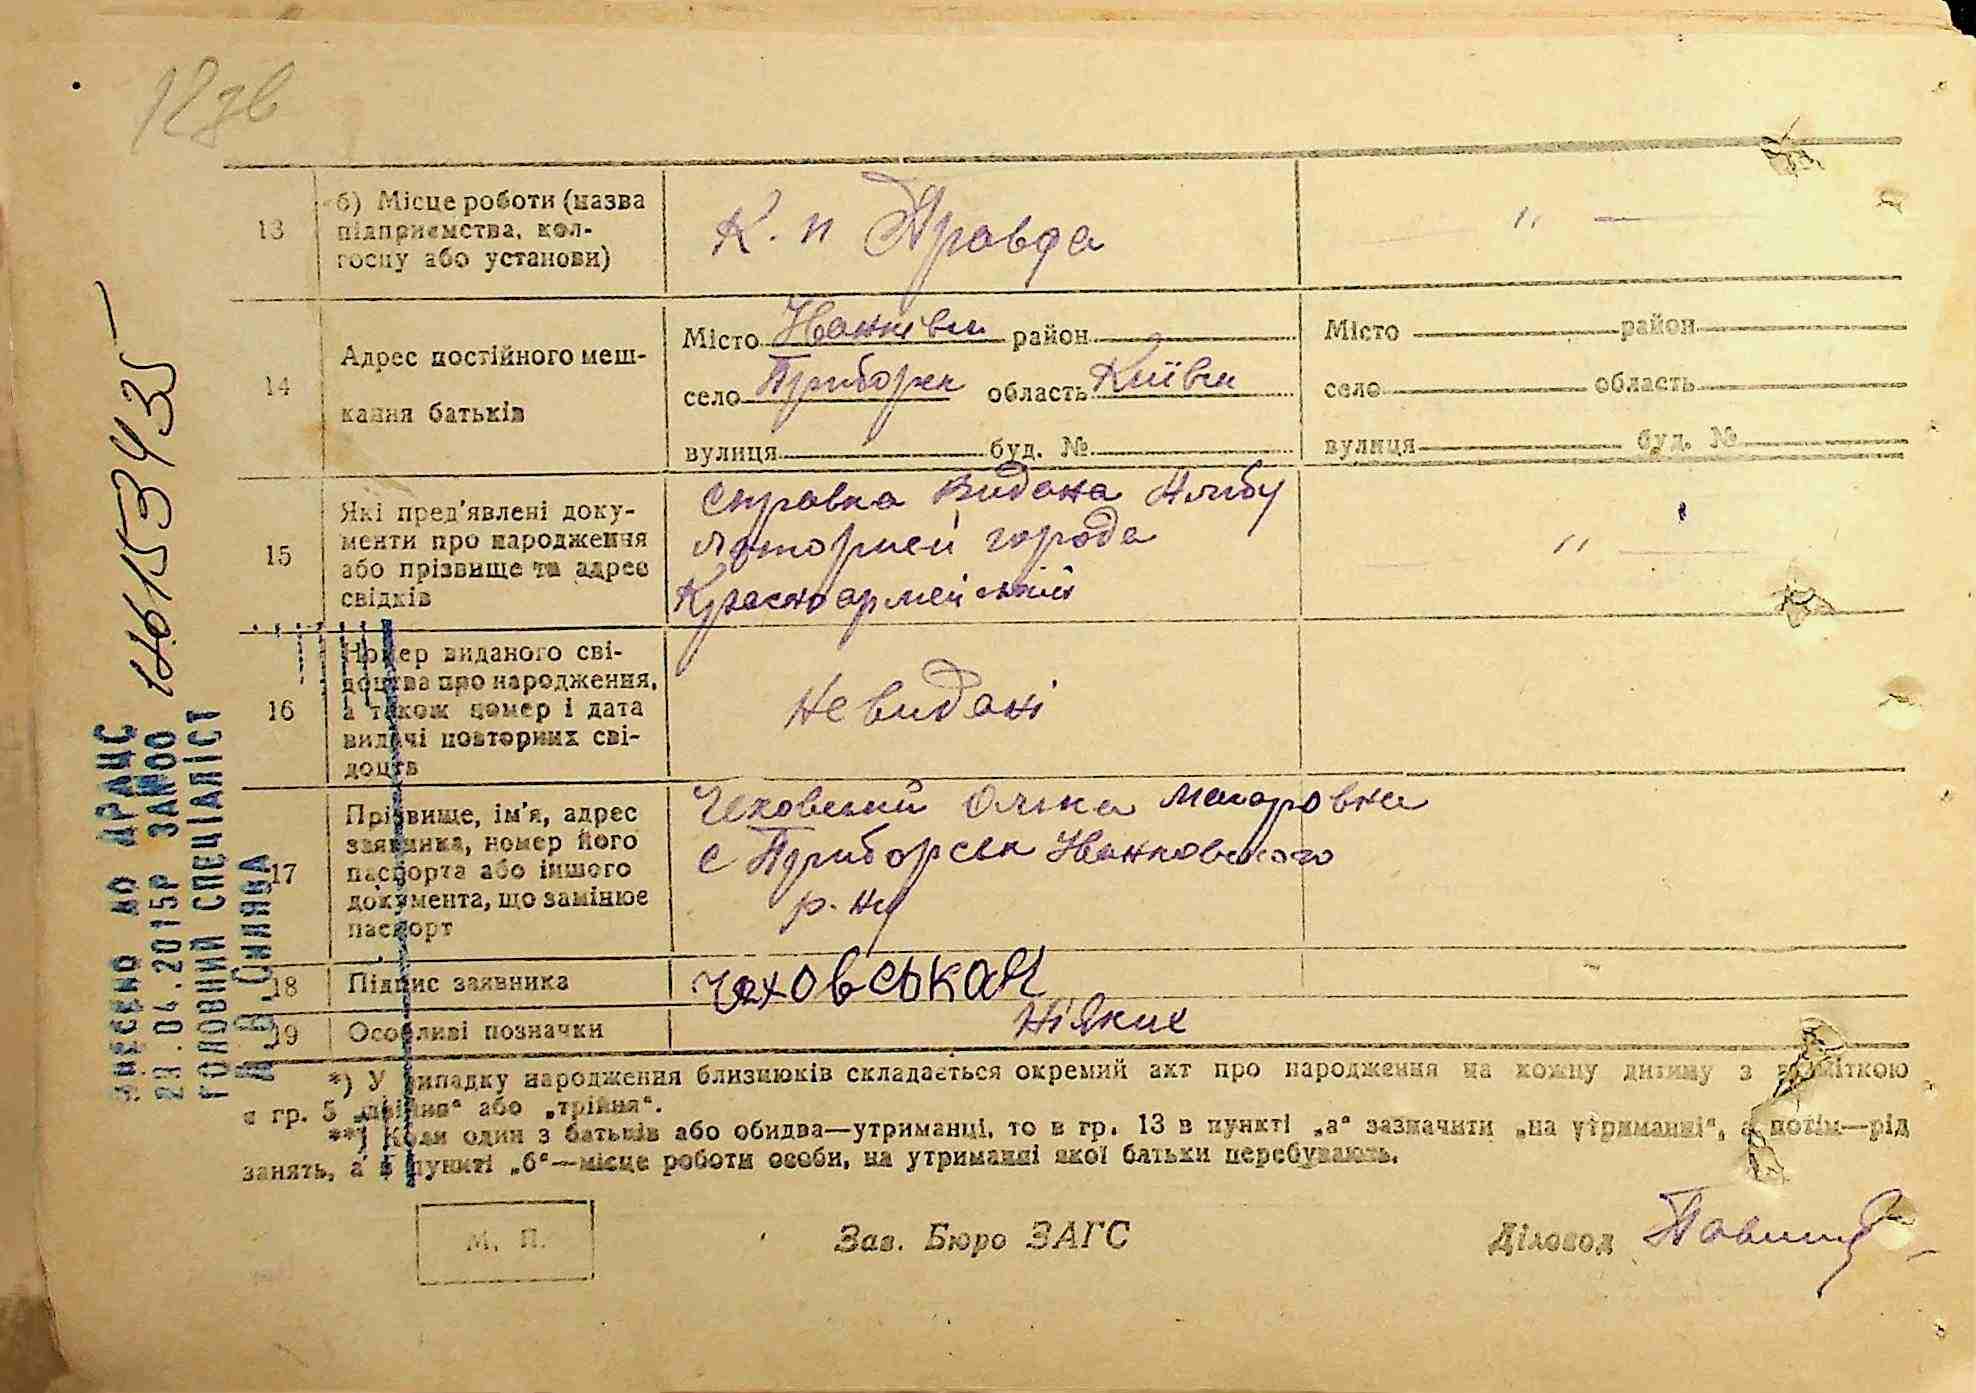 12 зв
13
б) Місце роботи (назва
підприємства, кол-
госпу або установи)
К. п Правда
"
14
Адрес постійного меш-
кання батьків
Місто Иванківи район
село Приборск область Київи
вулиця буд. №
Місто район
село область
вулиця буд. №
15
Які пред'явлені доку-
менти про народження
або прізвище та адрес
свідків
справка видана
города
Красноармейський
"
16
Номер виданого сві-
доцтва про народження,
а також номер і дата
видачі повторних сві-
доцтв
Не видані
17
Прізвище, ім'я, адрес
заявника, номер його
паспорта або іншого
документа, що замінює
паспорт
Чеховский Ольга Макаровна
с Приборськ Иванковского
р-ну
18
Підпис заявника
Чеховськая
19
Особливі позначки
Ніякие
*) У випадку народження близнюків складається окремий акт про народження на кожну дитину з помiткою
в гр. 5 „двійня“ або „трійня“.
**) Коли один з батьків або обидва—утриманці, то в гр. 13 в пункті „а“ зазначити „на утриманні“, а потім—рід
занять, а в пункті „б“—місце роботи особи, на утриманні якої батьки перебувають.
М. П.
Зав. Бюро ЗАГС
Діловод
ВНЕСЕНО ДО ДРАЦС
23.04.2015Р ЗА №00 146153435
ГОЛОВНИЙ СПЕЦІАЛІСТ